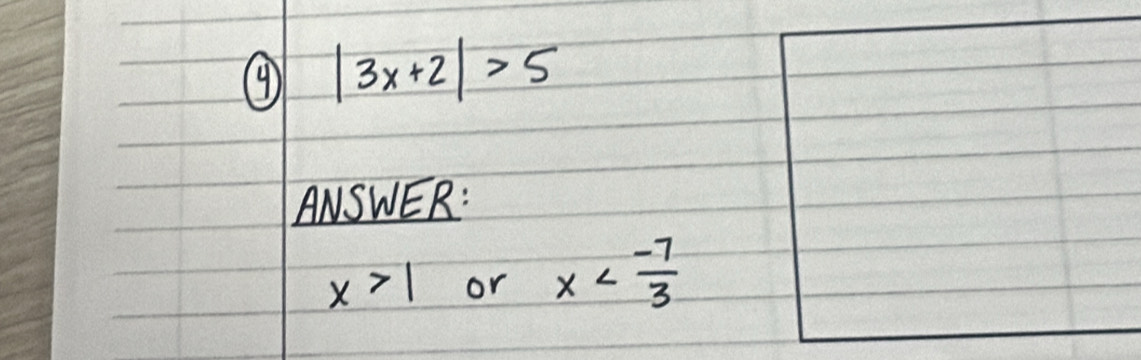 ④ |3x+2| > 5
ANSWER:
x > 1 or x < -7/3